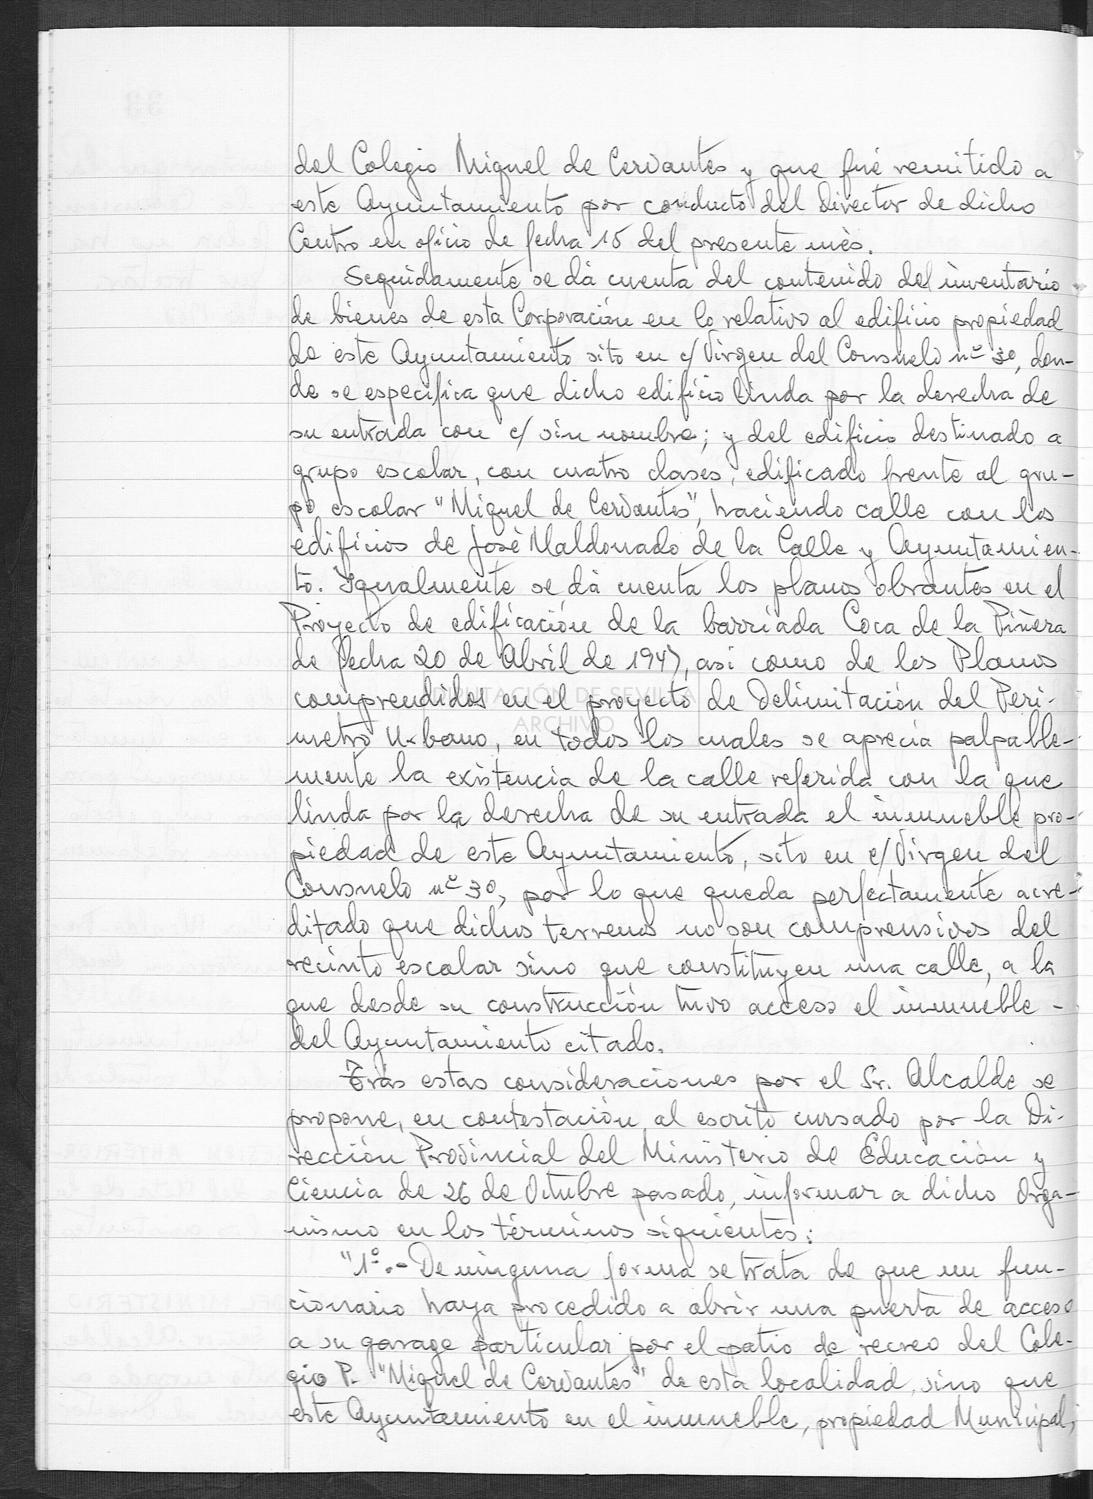 del Colegio Miguel de Cervantes y que fué remitido a
este Ayuntamiento por conducto del Director de dicho
Centro en oficio de fecha 15 del presente mes.
Seguidamente se dá cuenta del contenido del inventario
de bienes de esta Corporación en lo relativo al edificio propiedad
de este Ayuntamiento sito en c/ Virgen del Consuelo nº 30, don-
de se especifica que dicho edificio linda por la derecha de
su entrada con c/ sin nombre; y del edificio destinado a
grupo escolar, con cuatro clases, edificado frente al gru-
po escolar "Miguel de Cervantes", haciendo calle con los
edificios de José Maldonado de la Calle y Ayuntamien-
to. Igualmente se dá cuenta los planos obrantes en el
Proyecto de edificación de la barriada Coca de la Piñera
de fecha 20 de Abril de 1947, asi como de los Planos
comprendidos en el proyecto de Delimitación del Peri-
metro Urbano, en todos los cuales se aprecia palpable-
DIPUTACIÓN DE SEVILLA
ARCHIVO
mente la existencia de la calle referida con la que
linda por la derecha de su entrada el inmueble pro-
piedad de este Ayuntamiento, sito en c/ Virgen del
Consuelo nº 30, por lo que queda perfectamente acre-
ditado que dichos terrenos no son comprensivos del
recinto escolar sino que constituyen una calle, a la
que desde su construcción tuvo acceso el inmueble -
del Ayuntamiento citado.
Trás estas consideraciones por el Sr. Alcalde se
propone, en contestación al escrito cursado por la Di-
rección Provincial del Ministerio de Educación y
Ciencia de 26 de Octubre pasado, informar a dicho Orga-
nismo en los términos siguientes:
"1º.- De ninguna forma se trata de que un fun-
cionario haya procedido a abrir una puerta de acceso
a su garage particular por el patio de recreo del Cole-
gio P. "Miguel de Cervantes" de esta localidad, sino que
este Ayuntamiento en el inmueble, propiedad Municipal,